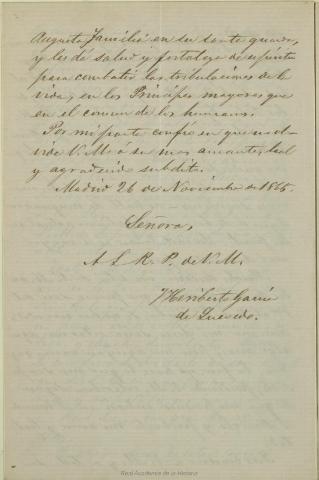 Augusta Familia en su santa guarda,
y les dé salud y fortaleza de espíritu
para combatir las tribulaciones de la
vida, en los Príncipes mayores que
en el comun de los humanos.
Por mi parte confío en que no ol-
vide V. M. á su mas amante, leal
y agradecido subdito.
Madrid 26 de Noviembre de 1865.
Señora,
A L R. P. de V. M.
Heriberto García
de Quevedo.
Real Academia de la Historia